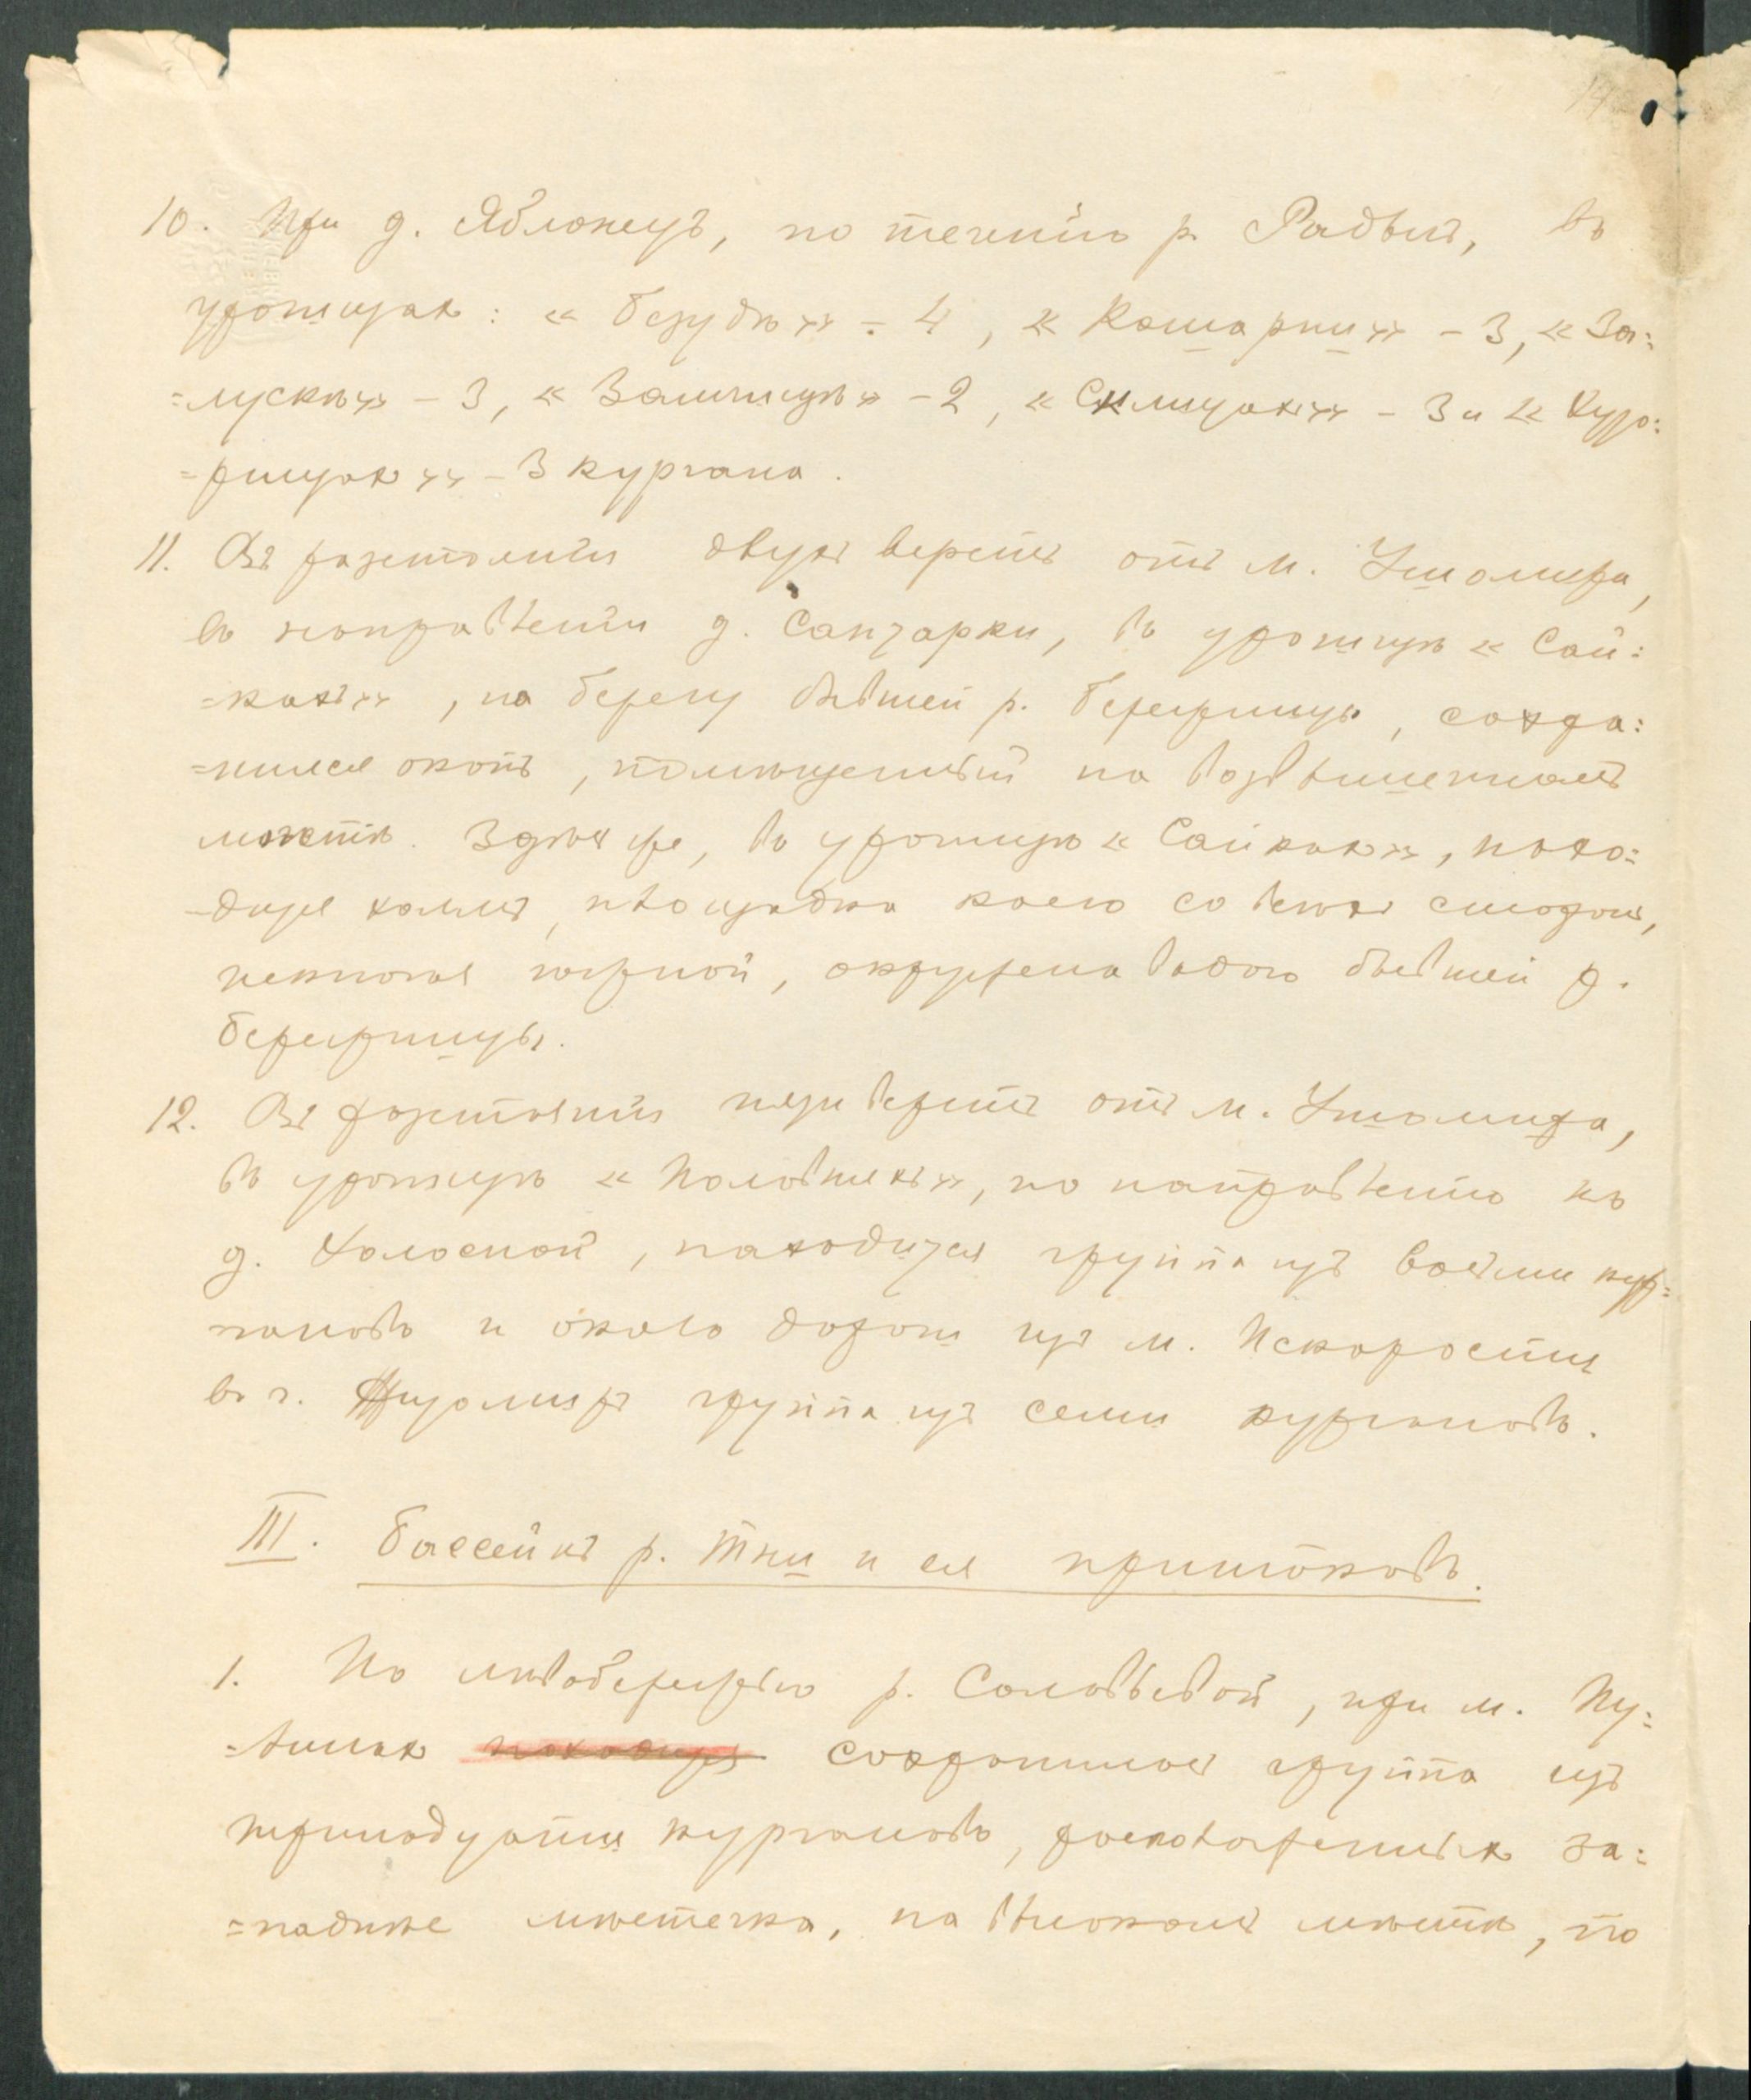 10. При д. Яблонецъ, по теченію р. Радыш, въ
урочищах: « безуды » - 4, « Кошарки » - 3, « За=
=лускѣ » - 3, « Замчищѣ » - 2, « Селищахъ » - 3 и « Куро=
=рищах » - 3 кургана.
11. Въ разстояніи двухъ верстъ отъ м. Ушомира,
въ направленіи д. Сантарки, въ урочищѣ « Сай=
=кахъ », на берегу бывшей р. березницы, сохра=
=нился окопъ, помѣщенный на возвышенномъ
мѣстѣ. Здѣсь же, въ урочищѣ « Сайках », нахо=
=дится холмъ, площадка коего со всѣхъ сторонъ,
окружена водою бывшей р.
березницы.
12. Въ разстояніи пяти верстъ отъ м. Ушомира,
въ урочищѣ «», по направленію къ
д. Холосной, находится группа изъ восьми кур=
=гановъ и около дороги изъ м. Искорости
въ г. Житомиръ группа изъ семи кургановъ.
III. бассейнъ р. Тни и ея притоковъ.
1. По лѣвобережью р. Соловьевой, при м. Пу=
=линах находится сохранилась группа изъ
тринадцати кургановъ, расположенных за=
=паднѣе мѣстечка, на высокомъ мѣстѣ, по